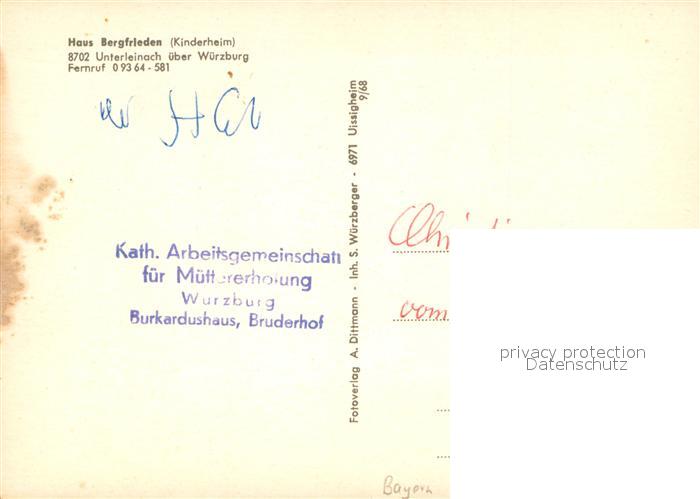 Haus Bergfrieden (Kinderheim)
8702 Unterleinach über Würzburg
Fernruf 0 93 64 - 581
Kath. Arbeitsgemeinschaft
für Müttererholung
Würzburg
Burkardushaus, Bruderhof
Fotoverlag A. Dittmann - Inh. S. Würzberger - 6971 Uissigheim
9/68
vom
privacy protection
Datenschutz
Bayern